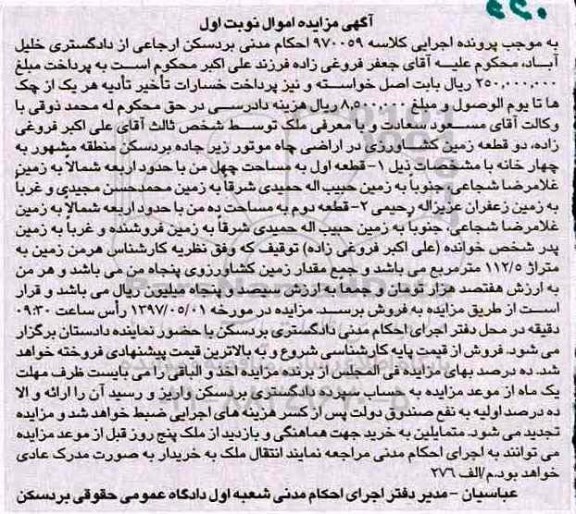 آگهی مزایده اموال نوبت اول
به موجب پرونده اجرایی کلاسه ۹۷۰۰۵۹ احکام مدنی بردسکن ارجاعی از دادگستری خلیل
آباد، محکوم علیه آقای جعفر فروغی زاده فرزند علی اکبر محکوم است به پرداخت مبلغ
۲۵۰,۰۰۰,۰۰۰ ریال بابت اصل خواسته و نیز پرداخت خسارات تأخیر تأدیه هر یک از چک
ها تا یوم الوصول و مبلغ ۸,۵۰۰,۰۰۰ ریال هزینه دادرسی در حق محکوم له محمد ذوقی با
وکالت آقای مسعود سعادت و با معرفی ملک توسط شخص ثالث آقای علی اکبر فروغی
زاده، دو قطعه زمین کشاورزی در اراضی چاه موتور زیر جاده بردسکن منطقه مشهور به
چهار خانه با مشخصات ذیل ۱- قطعه اول به مساحت چهل من با حدود اربعه شمالاً به زمین
غلامرضا شجاعی، جنوباً به زمین حبیب اله حمیدی شرقاً به زمین محمدحسن مجیدی و غرباً
به زمین زعفران عزیزاله رحیمی ۲- قطعه دوم به مساحت ده من با حدود اربعه شمالاً به زمین
غلامرضا شجاعی، جنوباً به زمین حبیب اله حمیدی شرقاً به زمین فروشنده و غرباً به زمین
پدر شخص خوانده (علی اکبر فروغی زاده) توقیف که وفق نظریه کارشناس هرمن زمین به
متراژ ۱۱۲/۵ مترمربع می باشد و جمع مقدار زمین کشاورزوی پنجاه من می باشد و هر من
به ارزش هفتصد هزار تومان و جمعا به ارزش سیصد و پنجاه میلیون ریال می باشد و قرار
است از طریق مزایده به فروش برسد. مزایده در مورخه ۱۳۹۷/۰۵/۰۱ رأس ساعت ۰۹:۳۰
دقیقه در محل دفتر اجرای احکام مدنی دادگستری بردسکن با حضور نماینده دادستان برگزار
می شود. فروش از قیمت پایه کارشناسی شروع و به بالاترین قیمت پیشنهادی فروخته خواهد
شد. ده درصد بهای مزایده فی المجلس از برنده مزایده اخذ و الباقی را می بایست ظرف مهلت
یک ماه از موعد مزایده به حساب سپرده دادگستری بردسکن واریز و رسید آن را ارائه و الا
ده درصد اولیه به نفع صندوق دولت پس از کسر هزینه های اجرایی ضبط خواهد شد و مزایده
تجدید می شود. متمایلین به خرید جهت هماهنگی و بازدید از ملک پنج روز قبل از موعد مزایده
می توانند به اجرای احکام مدنی مراجعه نمایند انتقال ملک به خریدار به صورت مدرک عادی
خواهد بود.م/الف ۲۷۶
عباسیان - مدیر دفتر اجرای احکام مدنی شعبه اول دادگاه عمومی حقوقی بردسکن